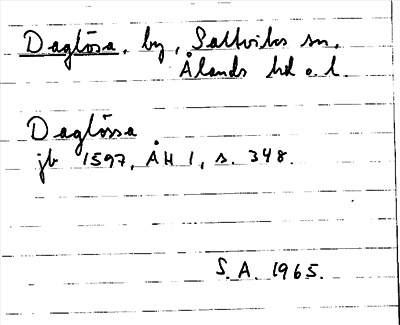 Daglösa, by, Saltviks sn,
Ålands hd o. l.
Daglössa
jb 1597, ÅH 1, s. 348.
S. A. 1965.